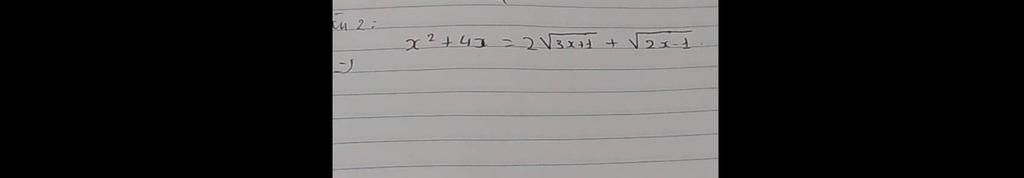 2:
x² + 4x = 2√(3x+1) + √(2x-1)
=)